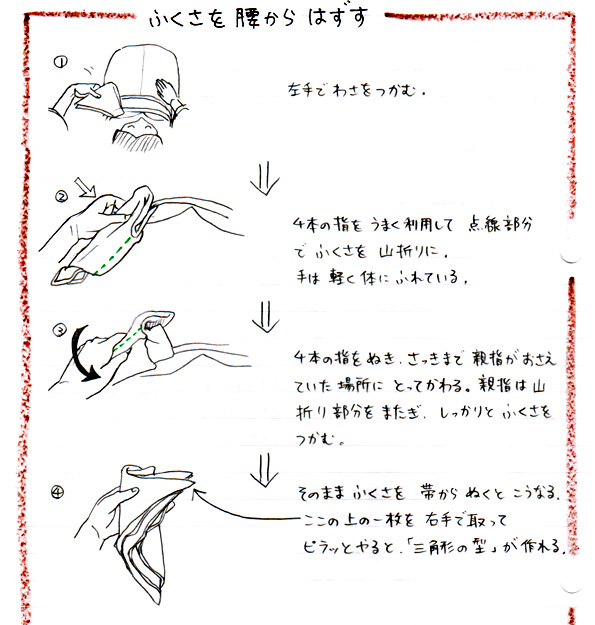 ふくさを腰からはずす
①
左手でわさをつかむ.
②
4本の指をうまく利用して 点線部分
で ふくさを 山折りに.
手は 軽く 体に ふれている.
③
4本の指をぬき、さっきまで 親指がおさえ
ていた場所に とってかわる。親指は山
折り部分をまたぎ、しっかりと ふくさを
つかむ。
④
そのまま ふくさを 帯から ぬくと こうなる.
ここの上の一枚を 右手で取って
ピラッとやると、「三角形の型」が作れる.